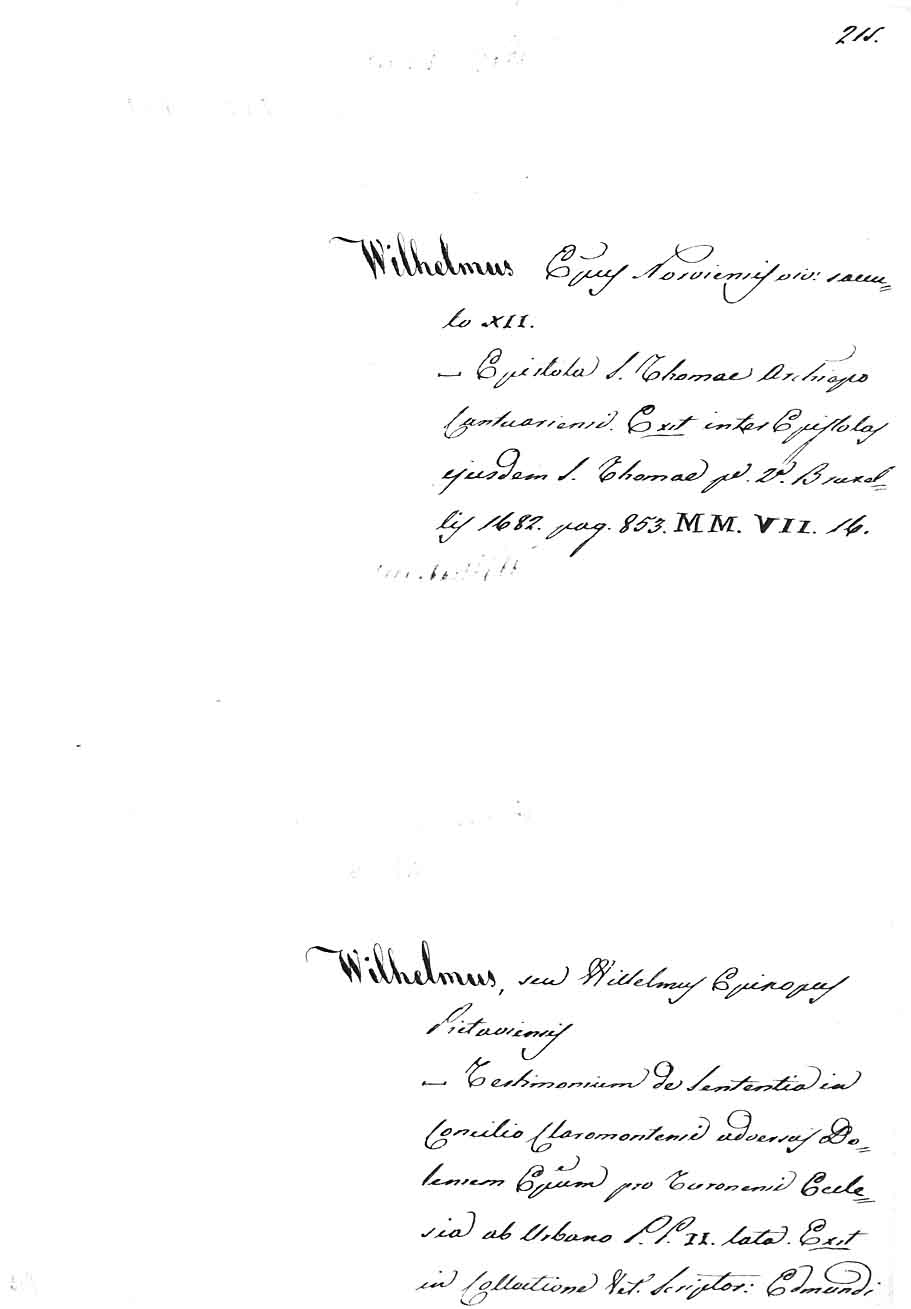 215.
Wilhelmus Epus Norviensis viv: saecu=
lo XII.
— Epistola S. Thomae Archiepo
Cantuariensi. Exit inter Epistolas
ejusdem S. Thomae pe. 2a. Bruxel=
lis 1682. pag. 853. MM. VII. 16.
Wilhelmus, seu Willelmus Episcopus
Pictaviensis
— Testimonium de Sententia in
Concilio Claromontensi adversus Do=
lensem Epum pro Turonensi Eccle=
sia ab Urbano P.P. II. lata. Exit
in Collectione Vet. Scriptor: Edmundi